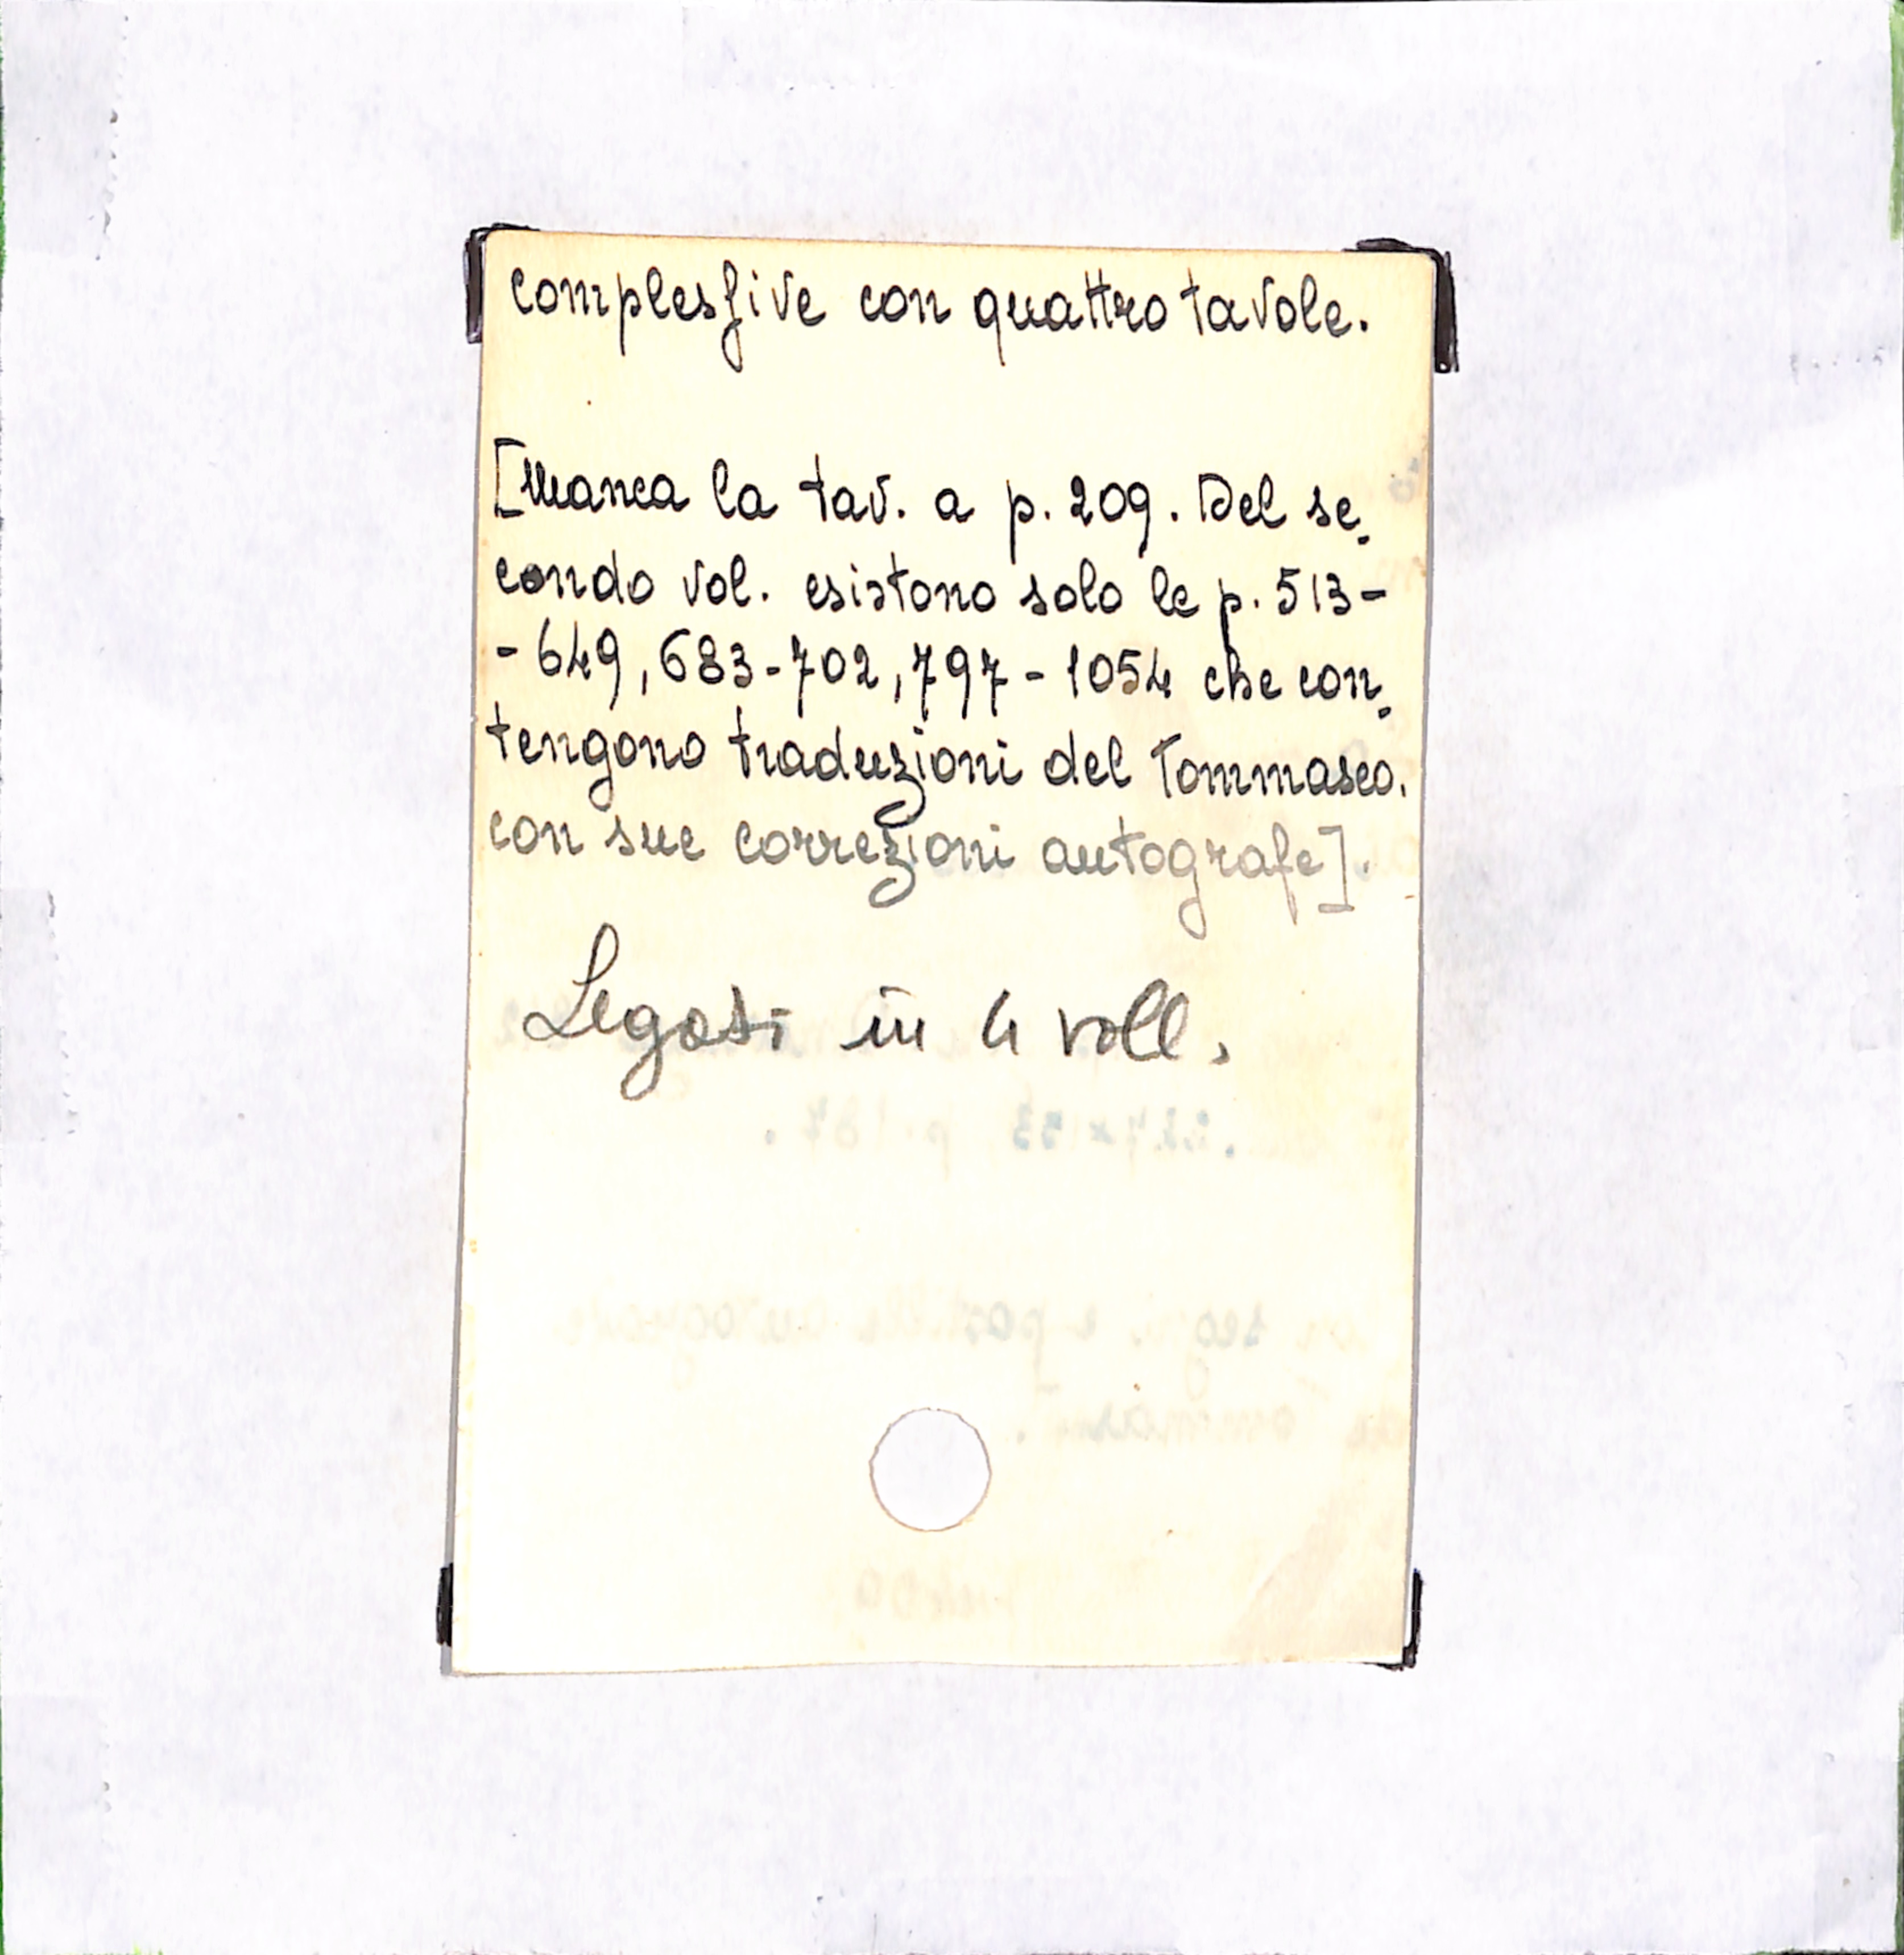 complessive con quattro tavole.
[Manca la tav. a p. 209. Del se-
condo vol. esistono solo le p. 513-
-649, 683-702, 797-1054 che con-
tengono traduzioni del Tommaseo.
con sue correzioni autografe].
Legati in 4 voll.